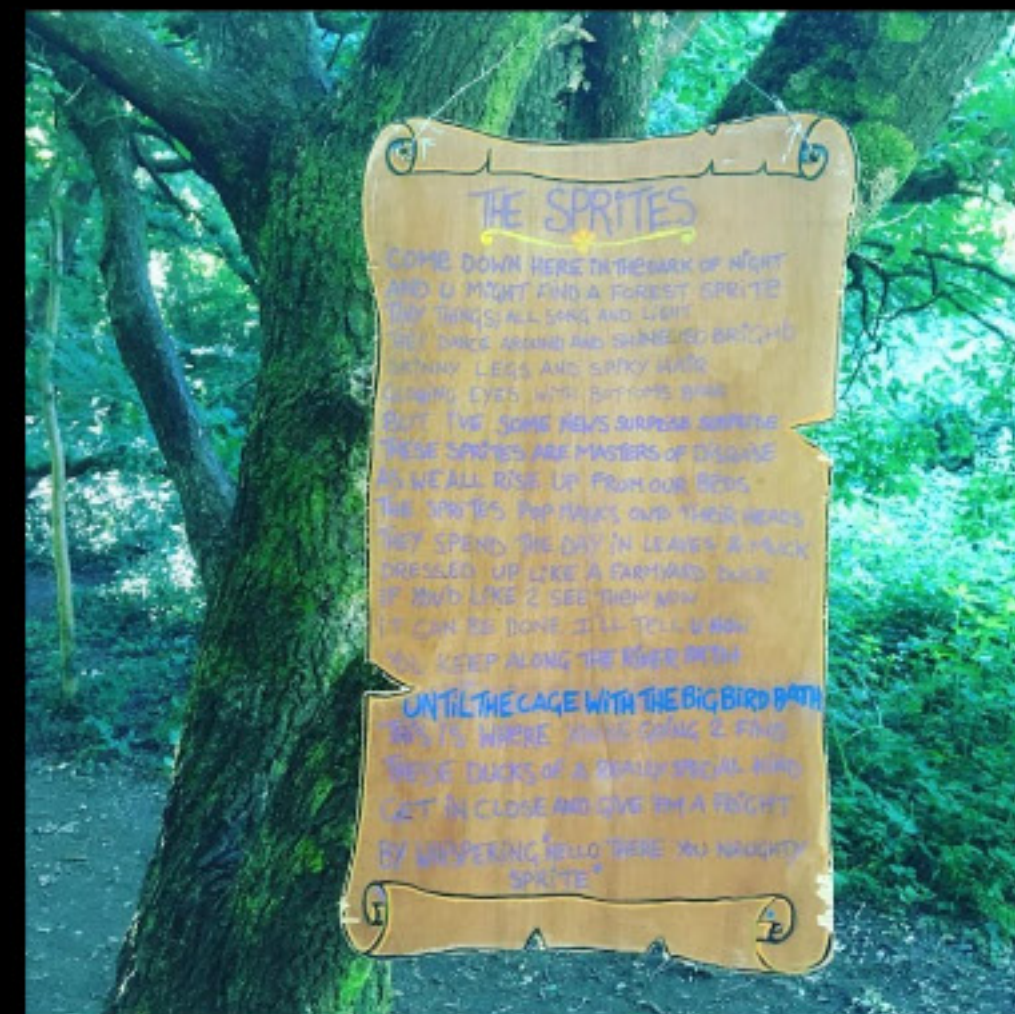 THE SPRITES
COME DOWN HERE IN THE DARK OF NIGHT
AND U MIGHT FIND A FOREST SPRITE
TINY THINGS, ALL SONG AND LIGHT
THEY DANCE AROUND AND SHINE SO BRIGHT
SKINNY LEGS AND SPIKY HAIR
GLOWING EYES WITH BOTTOMS BARE
BUT I'VE SOME NEWS SURPRISE SURPRISE
THESE SPRITES ARE MASTERS OF DISGUISE
AS WE ALL RISE UP FROM OUR BEDS
THE SPRITES POP MASKS ONTO THEIR HEADS
THEY SPEND THE DAY IN LEAVES & MUCK
DRESSED UP LIKE A FARMYARD DUCK
IF YOU'D LIKE 2 SEE THEM NOW
IT CAN BE DONE I'LL TELL U HOW
KEEP ALONG THE RIVER PATH
UNTIL THE CAGE WITH THE BIG BIRD BATH
THIS IS WHERE YOU'RE GOING 2 FIND
THESE DUCKS OF A REALLY SPECIAL KIND
GET IN CLOSE AND GIVE 'EM A FRIGHT
BY WHISPERING "HELLO THERE YOU NAUGHTY
SPRITE"